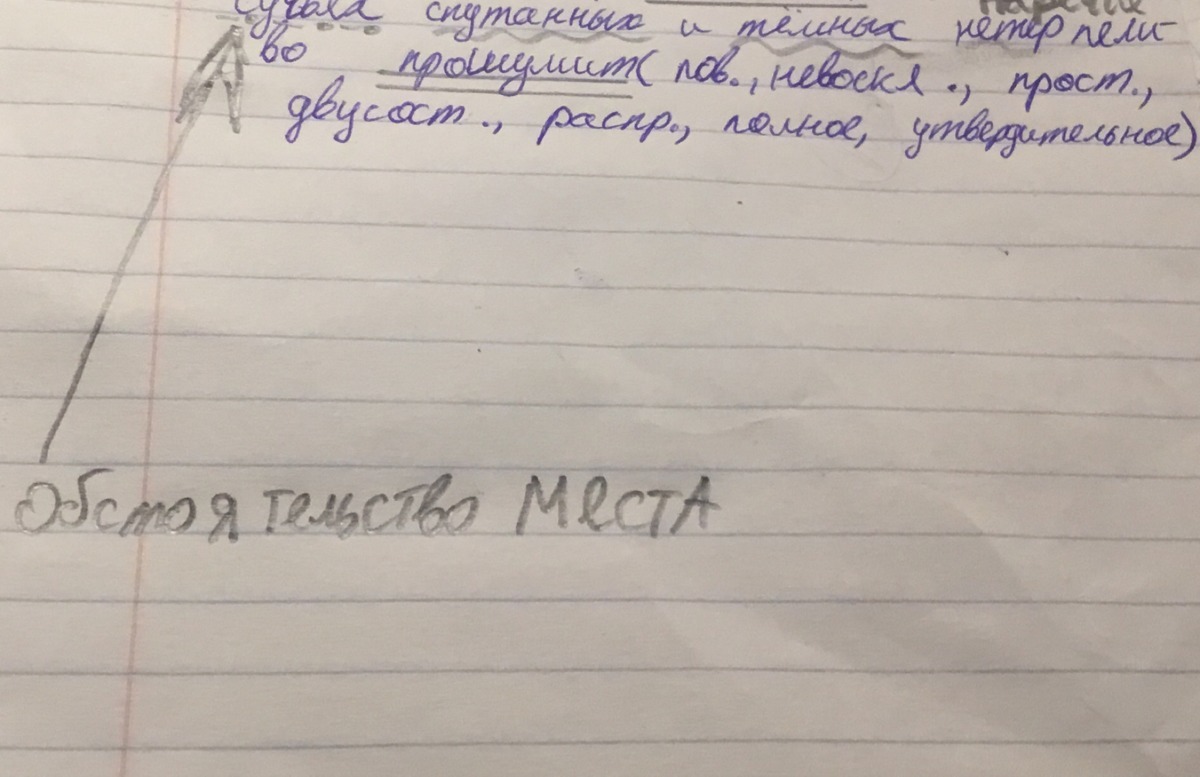 наречие
сучьях спутанных и тёмных нетерпели-
во прошумит( пов., невоскл ., прост.,
двусост ., распр., полное, утвердительное)
Обстоятельство Места